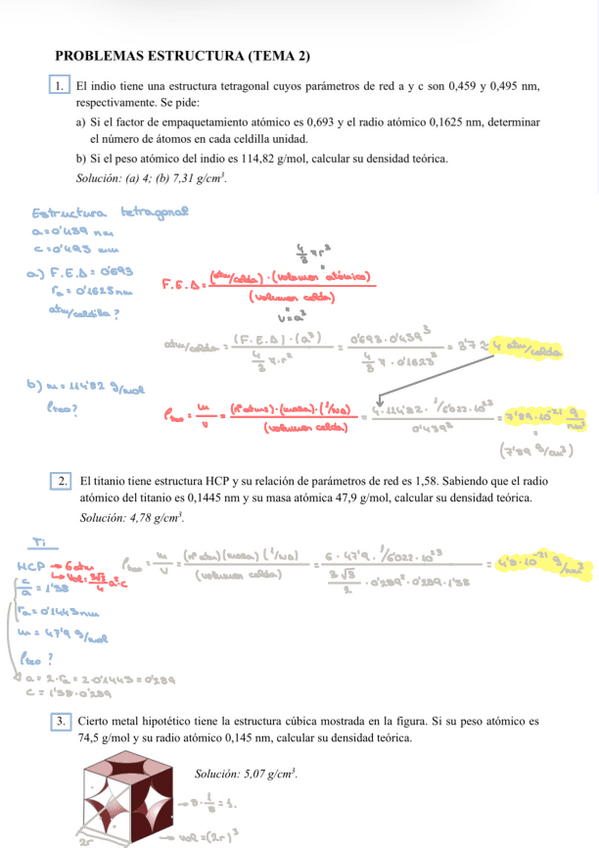 PROBLEMAS ESTRUCTURA (TEMA 2)
1. El indio tiene una estructura tetragonal cuyos parámetros de red a y c son 0,459 y 0,495 nm,
respectivamente. Se pide:
a) Si el factor de empaquetamiento atómico es 0,693 y el radio atómico 0,1625 nm, determinar
el número de átomos en cada celdilla unidad.
b) Si el peso atómico del indio es 114,82 g/mol, calcular su densidad teórica.
Solución: (a) 4; (b) 7,31 g/cm³.
Estructura tetragonal
a=0'459 nm
c=0'495 nm
4/3 π r³
a.) F.E.A = 0'693
F.E.A = (atm/celda)·(volumen atómico) / (volumen celda)
ra = 0'1625 nm
atm/celdilla?
v=a³
atm/celda = (F.E.A)·(a³) / 4/3 π·r³ = 0'693·0'459³ / 4/3 π·0'1625³ = 3'7 ≈ 4 atm/celda
b) m = 114'82 g/mol
ρteo?
ρteo = m/v = (nº atms)·(masa)·(1/NA) / (volumen celda) = 4·114'82·1/6'022·10²³ / 0'459³ = 7'89·10⁻²¹ g/nm³
(7'89 g/cm³)
2. El titanio tiene estructura HCP y su relación de parámetros de red es 1,58. Sabiendo que el radio
atómico del titanio es 0,1445 nm y su masa atómica 47,9 g/mol, calcular su densidad teórica.
Solución: 4,78 g/cm³.
Ti
HCP → 6 atm
c/a = 1'58
ρteo = m/v = (nº atm)(masa)(1/NA) / (volumen celda) = 6·47'9·1/6'022·10²³ / 3√3/2 ·0'289²·0'289·1'58 = 4'8·10⁻²¹ g/nm³
ra = 0'1445 nm
m = 47'9 g/mol
ρteo?
a = 2·ra = 2·0'1445 = 0'289
c = 1'58·0'289
3. Cierto metal hipotético tiene la estructura cúbica mostrada en la figura. Si su peso atómico es
74,5 g/mol y su radio atómico 0,145 nm, calcular su densidad teórica.
Solución: 5,07 g/cm³.
→ 8·1/8 = 1.
→ vol = (2r)³
2r